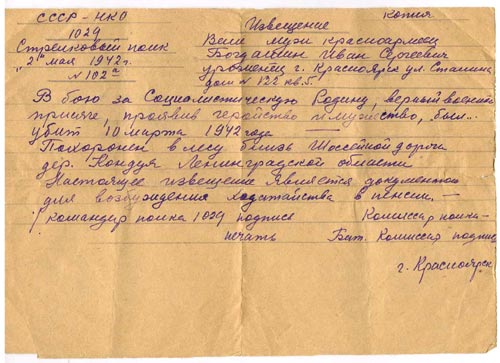 СССР - НКО
1029
Стрелковый полк
"2" мая 1942 г.
N 102а
Копия
Извещение
Ваш муж красноармеец
Иван Сергеевич
уроженец г. Красноярск ул. Сталина
дом N 122 кв. 5.
В бою за Социалистическую Родину, верный военной
присяге, проявив геройство и мужество, был
убит 10 марта 1942 года
Похоронен в лесу близь Шоссейной дороги
дер. Кондуя Ленинградской области
Настоящее извещение является документом
для возбуждения ходатайства о пенсии. —
Командир полка 1029 подпись Комиссар полка —
печать Бат. Комиссар подпись
г. Красноярск